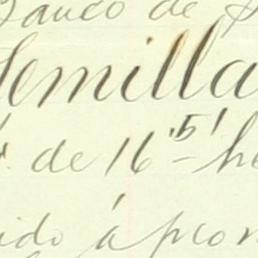 Banco de S
Semilla
de 16'5' he
ido á pcon